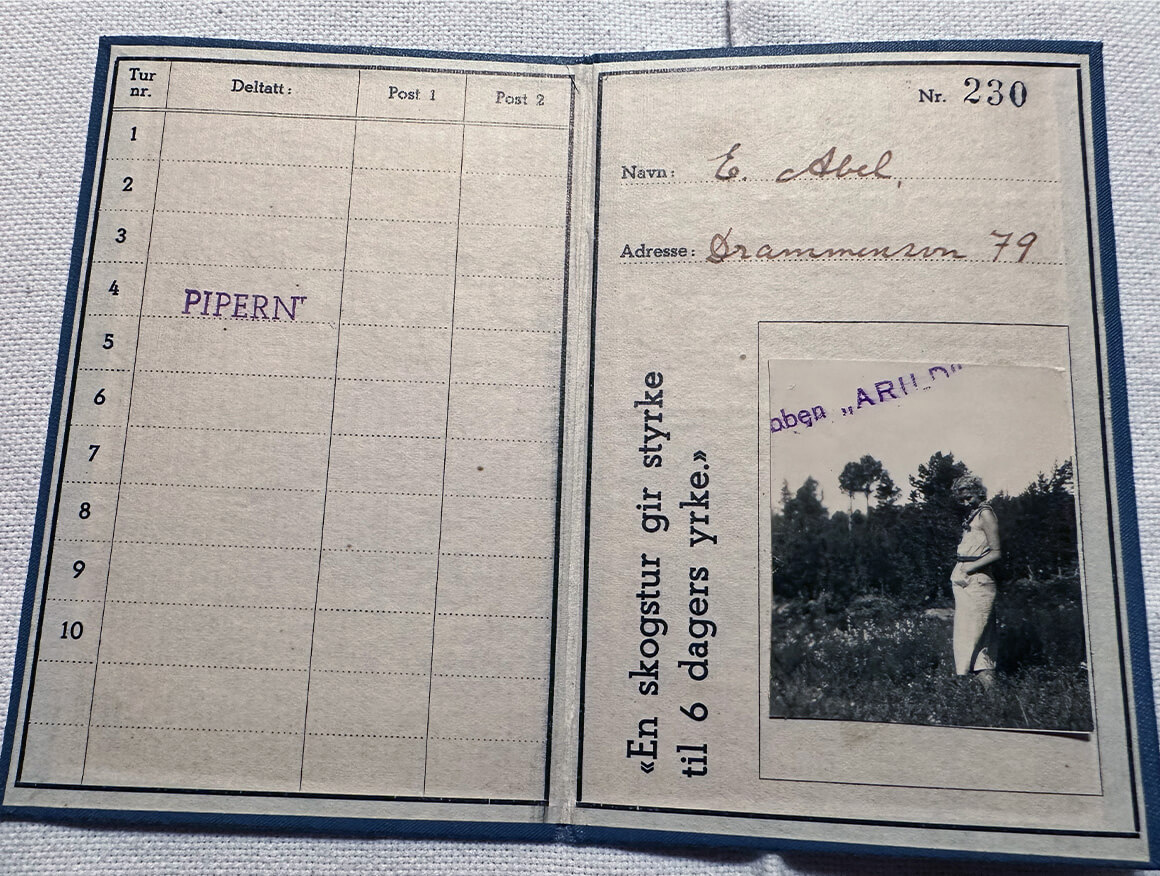 Tur nr.
Deltatt:
Post 1
Post 2
1
2
3
4
PIPERN"
5
6
7
8
9
10
Nr. 230
Navn: E. Abel,
Adresse: Drammensvn 79
«En skogstur gir styrke
til 6 dagers yrke.»
aben „ARILD"